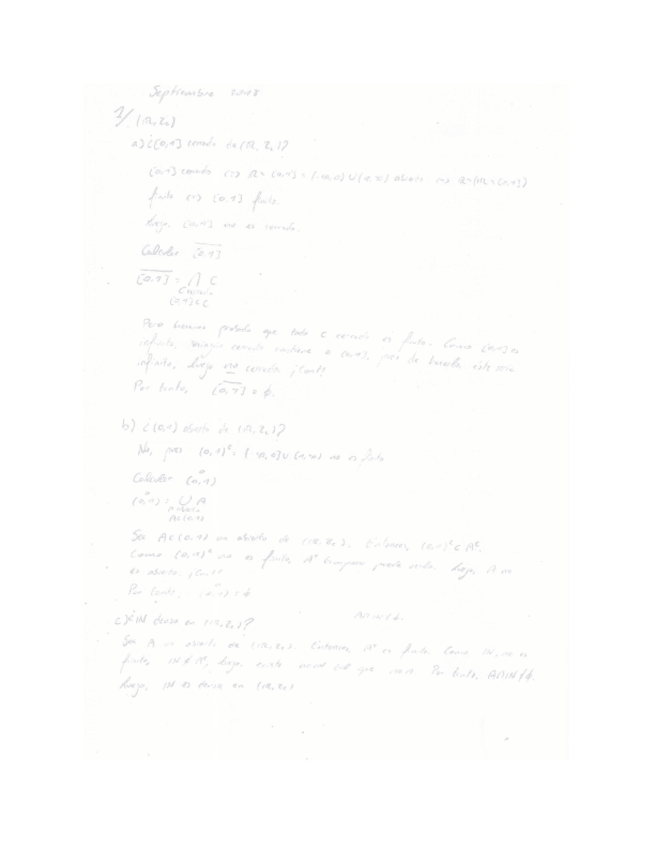 Septiembre 2018
1/ (ℝ, τ)
a) ¿[0,1] cerrado de (ℝ, τ)?
[0,1] cerrado <=> ℝ∖[0,1] = (-∞,0)∪(1,∞) abierto <=> ℝ∖(ℝ∖[0,1])
finito <=> [0,1] finito.
Luego, [0,1] no es cerrado.
Calcular [0,1]
[0,1] = ∩ C
C cerrado
[0,1]⊂C
Pero hemos probado que todo C cerrado es finito. Como [0,1] es
infinito, ningún cerrado contiene a [0,1], pues de hacerlo éste sería
infinito, luego no cerrado ¡Cont!
Por tanto, [0,1] = ∅.
b) ¿(0,1) abierto de (ℝ, τ)?
No, pues (0,1)ᶜ = (-∞,0]∪[1,∞) no es finito
Calcular (0,1)
(0,1) = ∪ A
A abierto
A⊂(0,1)
Sea A⊂(0,1) un abierto de (ℝ, τ). Entonces, (0,1)ᶜ⊂Aᶜ.
Como (0,1)ᶜ no es finito, Aᶜ tampoco puede serlo. Luego, A no
es abierto. ¡Cont!
Por tanto, (0,1) = ∅
A∩ℕ≠∅.
c) ¿ℕ denso en (ℝ, τ)?
Sea A un abierto de (ℝ, τ). Entonces, Aᶜ es finito. Como ℕ no es
finito, ℕ⊄Aᶜ, luego existe n∈ℕ tal que n∈A. Por tanto, A∩ℕ≠∅.
Luego, ℕ es denso en (ℝ, τ)